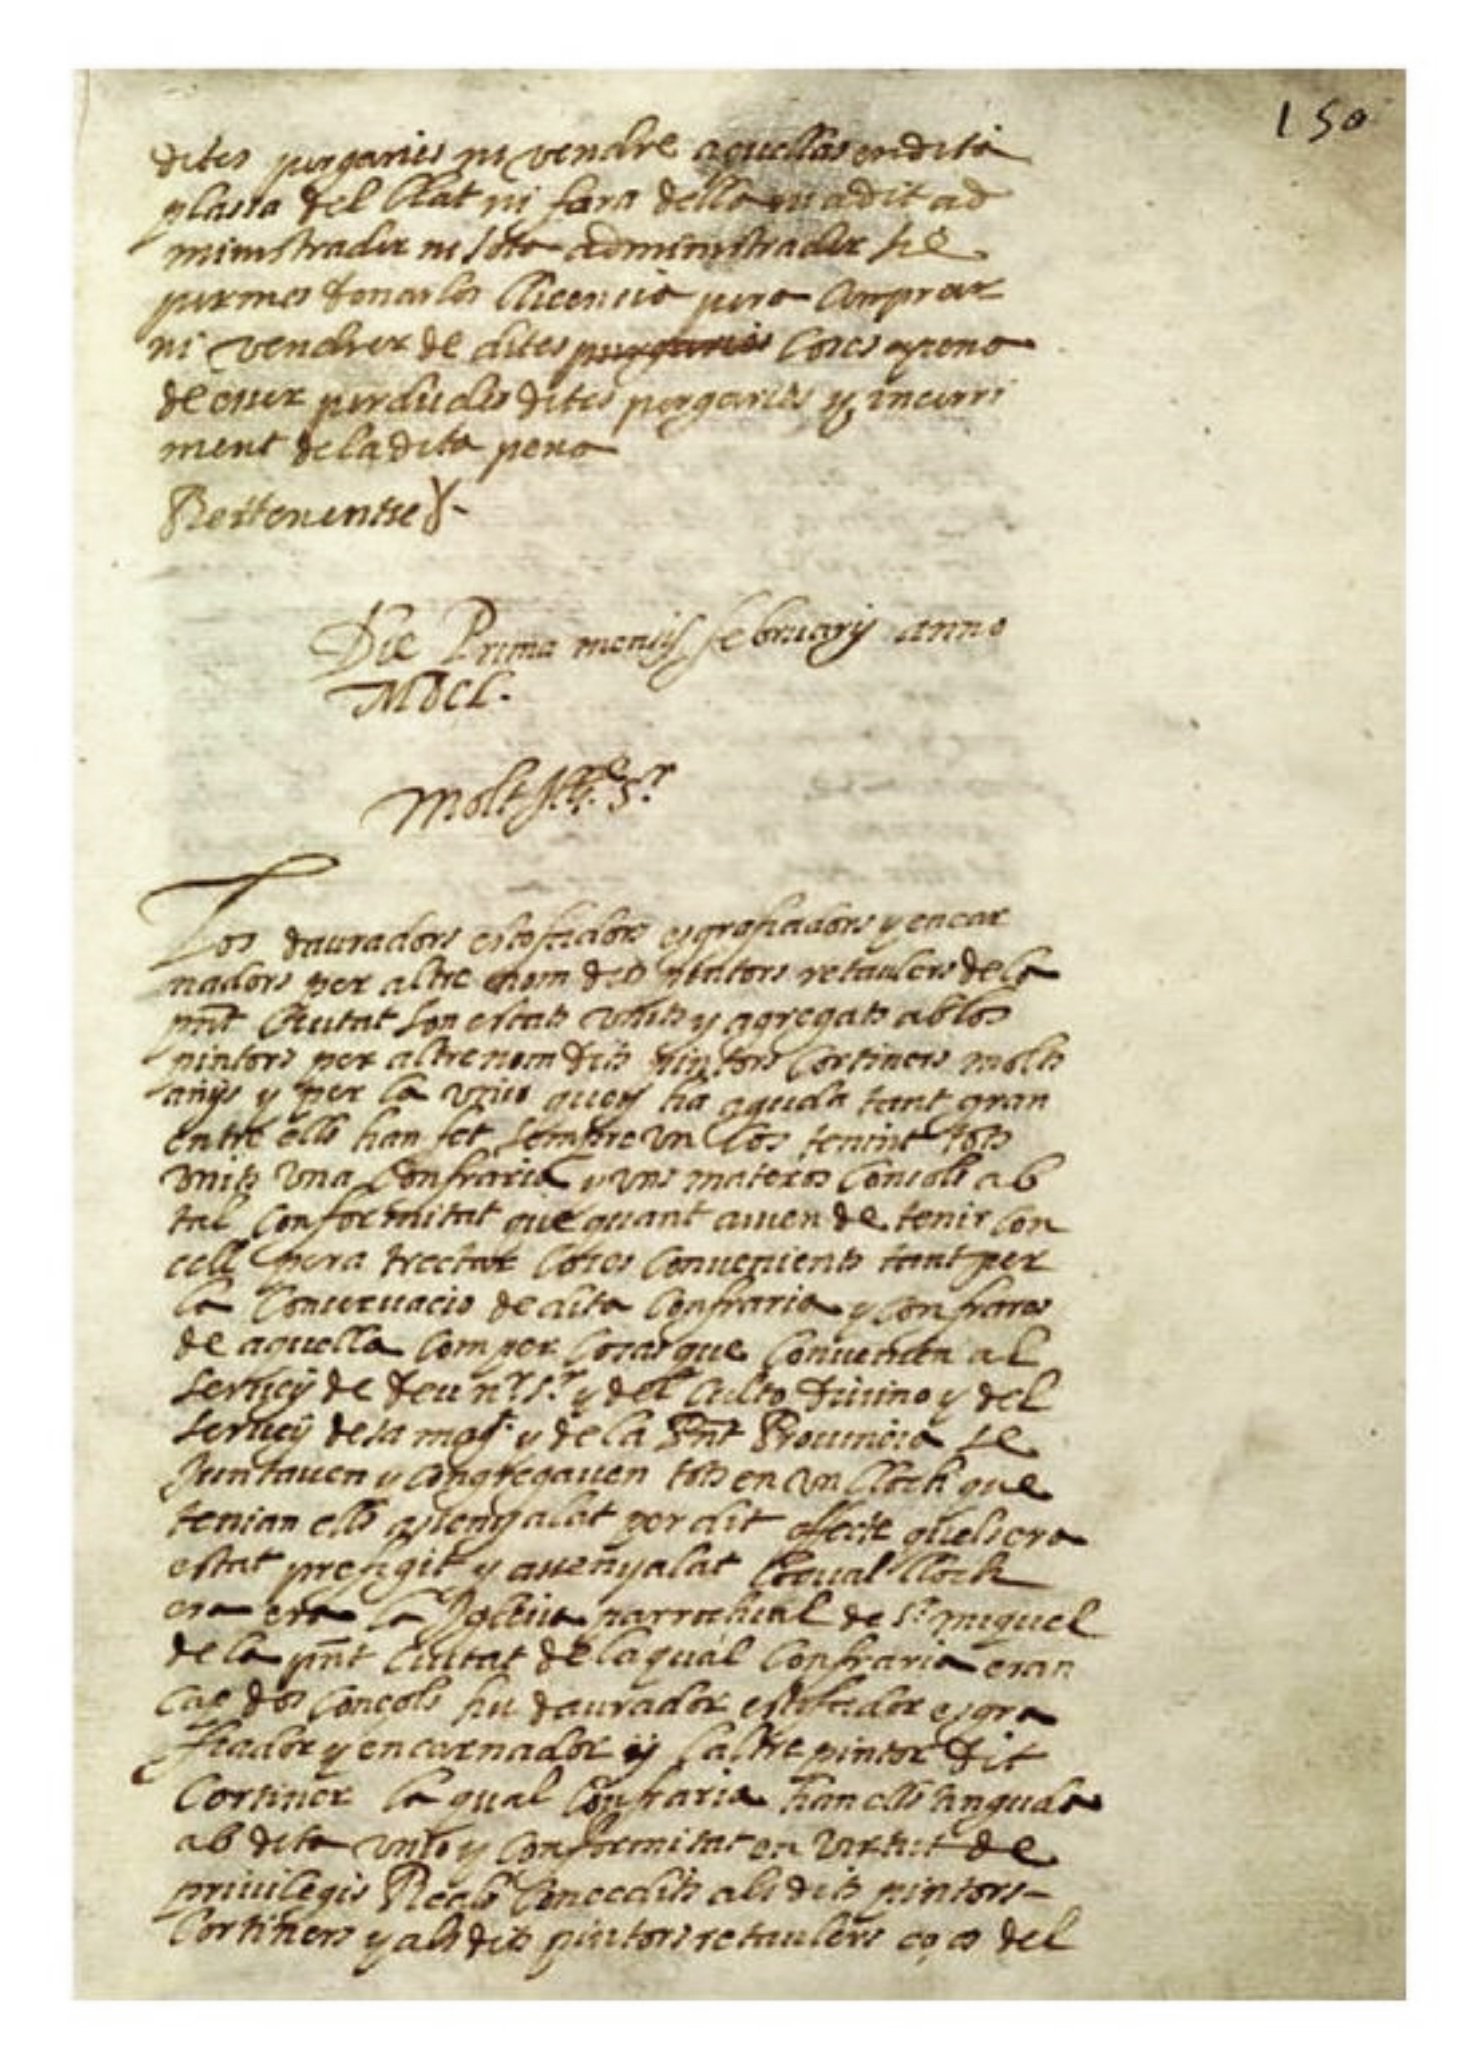 150
dites porgaries ni vendre aquellas en dita
plassa del Blat ni fora della ni a dit ad
ministrador ni sota administrador se
permes donarlos llicencia pera comprar
ni vendrer de dites porgaries coses a pena
de esser perdudes dites porgaries y incurri
ment de la dita pena
Die Prima mensis februarij anno
MDCL.
Molt Ill.e S.r
Los dauradors estofadors esgrafiadors y encar
nadors per altre nom dits pintors retaulers de la
pnt Ciutat son estats units y agregats ab los
pintors per altre nom dits pintors Cortiners molts
anys y per la unio queys ha aguda tant gran
entre ells han fet sempre un Cos tenint tots
units una Confraria y uns matexos Consols ab
tal conformitat que quant avien de tenir con
cell pera tractar Coses Convenients tant per
la Conservacio de dita Confraria y confrares
de aquella Com per Cosas que Convenien al
servey de deu n.r S.r y del Culto Divino y del
servey de sa mag.t y de la Pnt Provincia se
Juntaven y congregaven tots en un lloch que
tenian ells assenyalat per dit effecte quels era
estat prefigit y assenyalat Loqual lloch
era era la Iglesia parrochial de S.t miquel
de la pnt Ciutat de la qual Confraria eran
Cap dos Consols hu daurador estofador esgra
fiador y encarnador y laltre pintor dit
Cortiner la qual Confraria han ells tinguda
ab dita unio y Conformitat en virtut de
privilegis Reals Concedits als dits pintors
Cortiners y als dits pintors retaulers ço es del